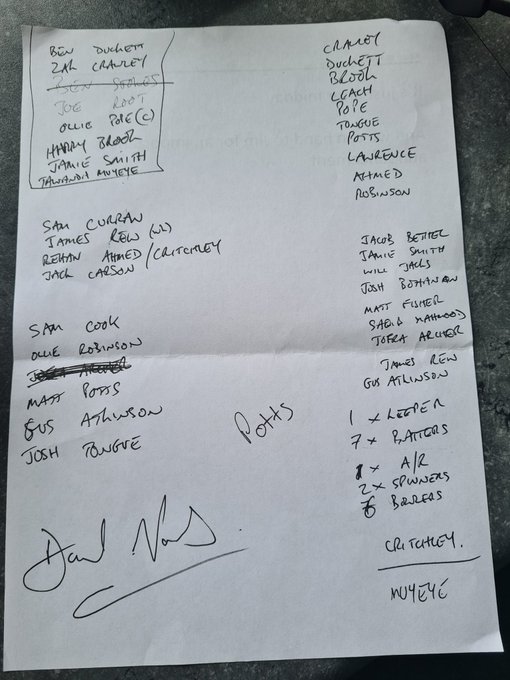 BEN DUCKETT
ZAK CRAWLEY
BEN STOKES
JOE ROOT
OLLIE POPE (C)
HARRY BROOK
JAMIE SMITH
TAWANDA MUYEYE
SAM CURRAN
JAMES REW (WK)
REHAN AHMED / CRITCHLEY
JACK CARSON
SAM COOK
OLLIE ROBINSON
JOFRA ARCHER
MATT POTTS
GUS ATKINSON
JOSH TONGUE
POTTS
CRAWLEY
DUCKETT
BROOK
LEACH
POPE
TONGUE
POTTS
LAWRENCE
AHMED
ROBINSON
JACOB BETHEL
JAMIE SMITH
WILL JACKS
JOSH BOHANNON
MATT FISHER
SAQIB MAHMOOD
JOFRA ARCHER
JAMES REW
GUS ATKINSON
1 x KEEPER
7 x BATTERS
1 x A/R
2 x SPINNERS
6 BOWLERS
CRITCHLEY.
MUYEYE